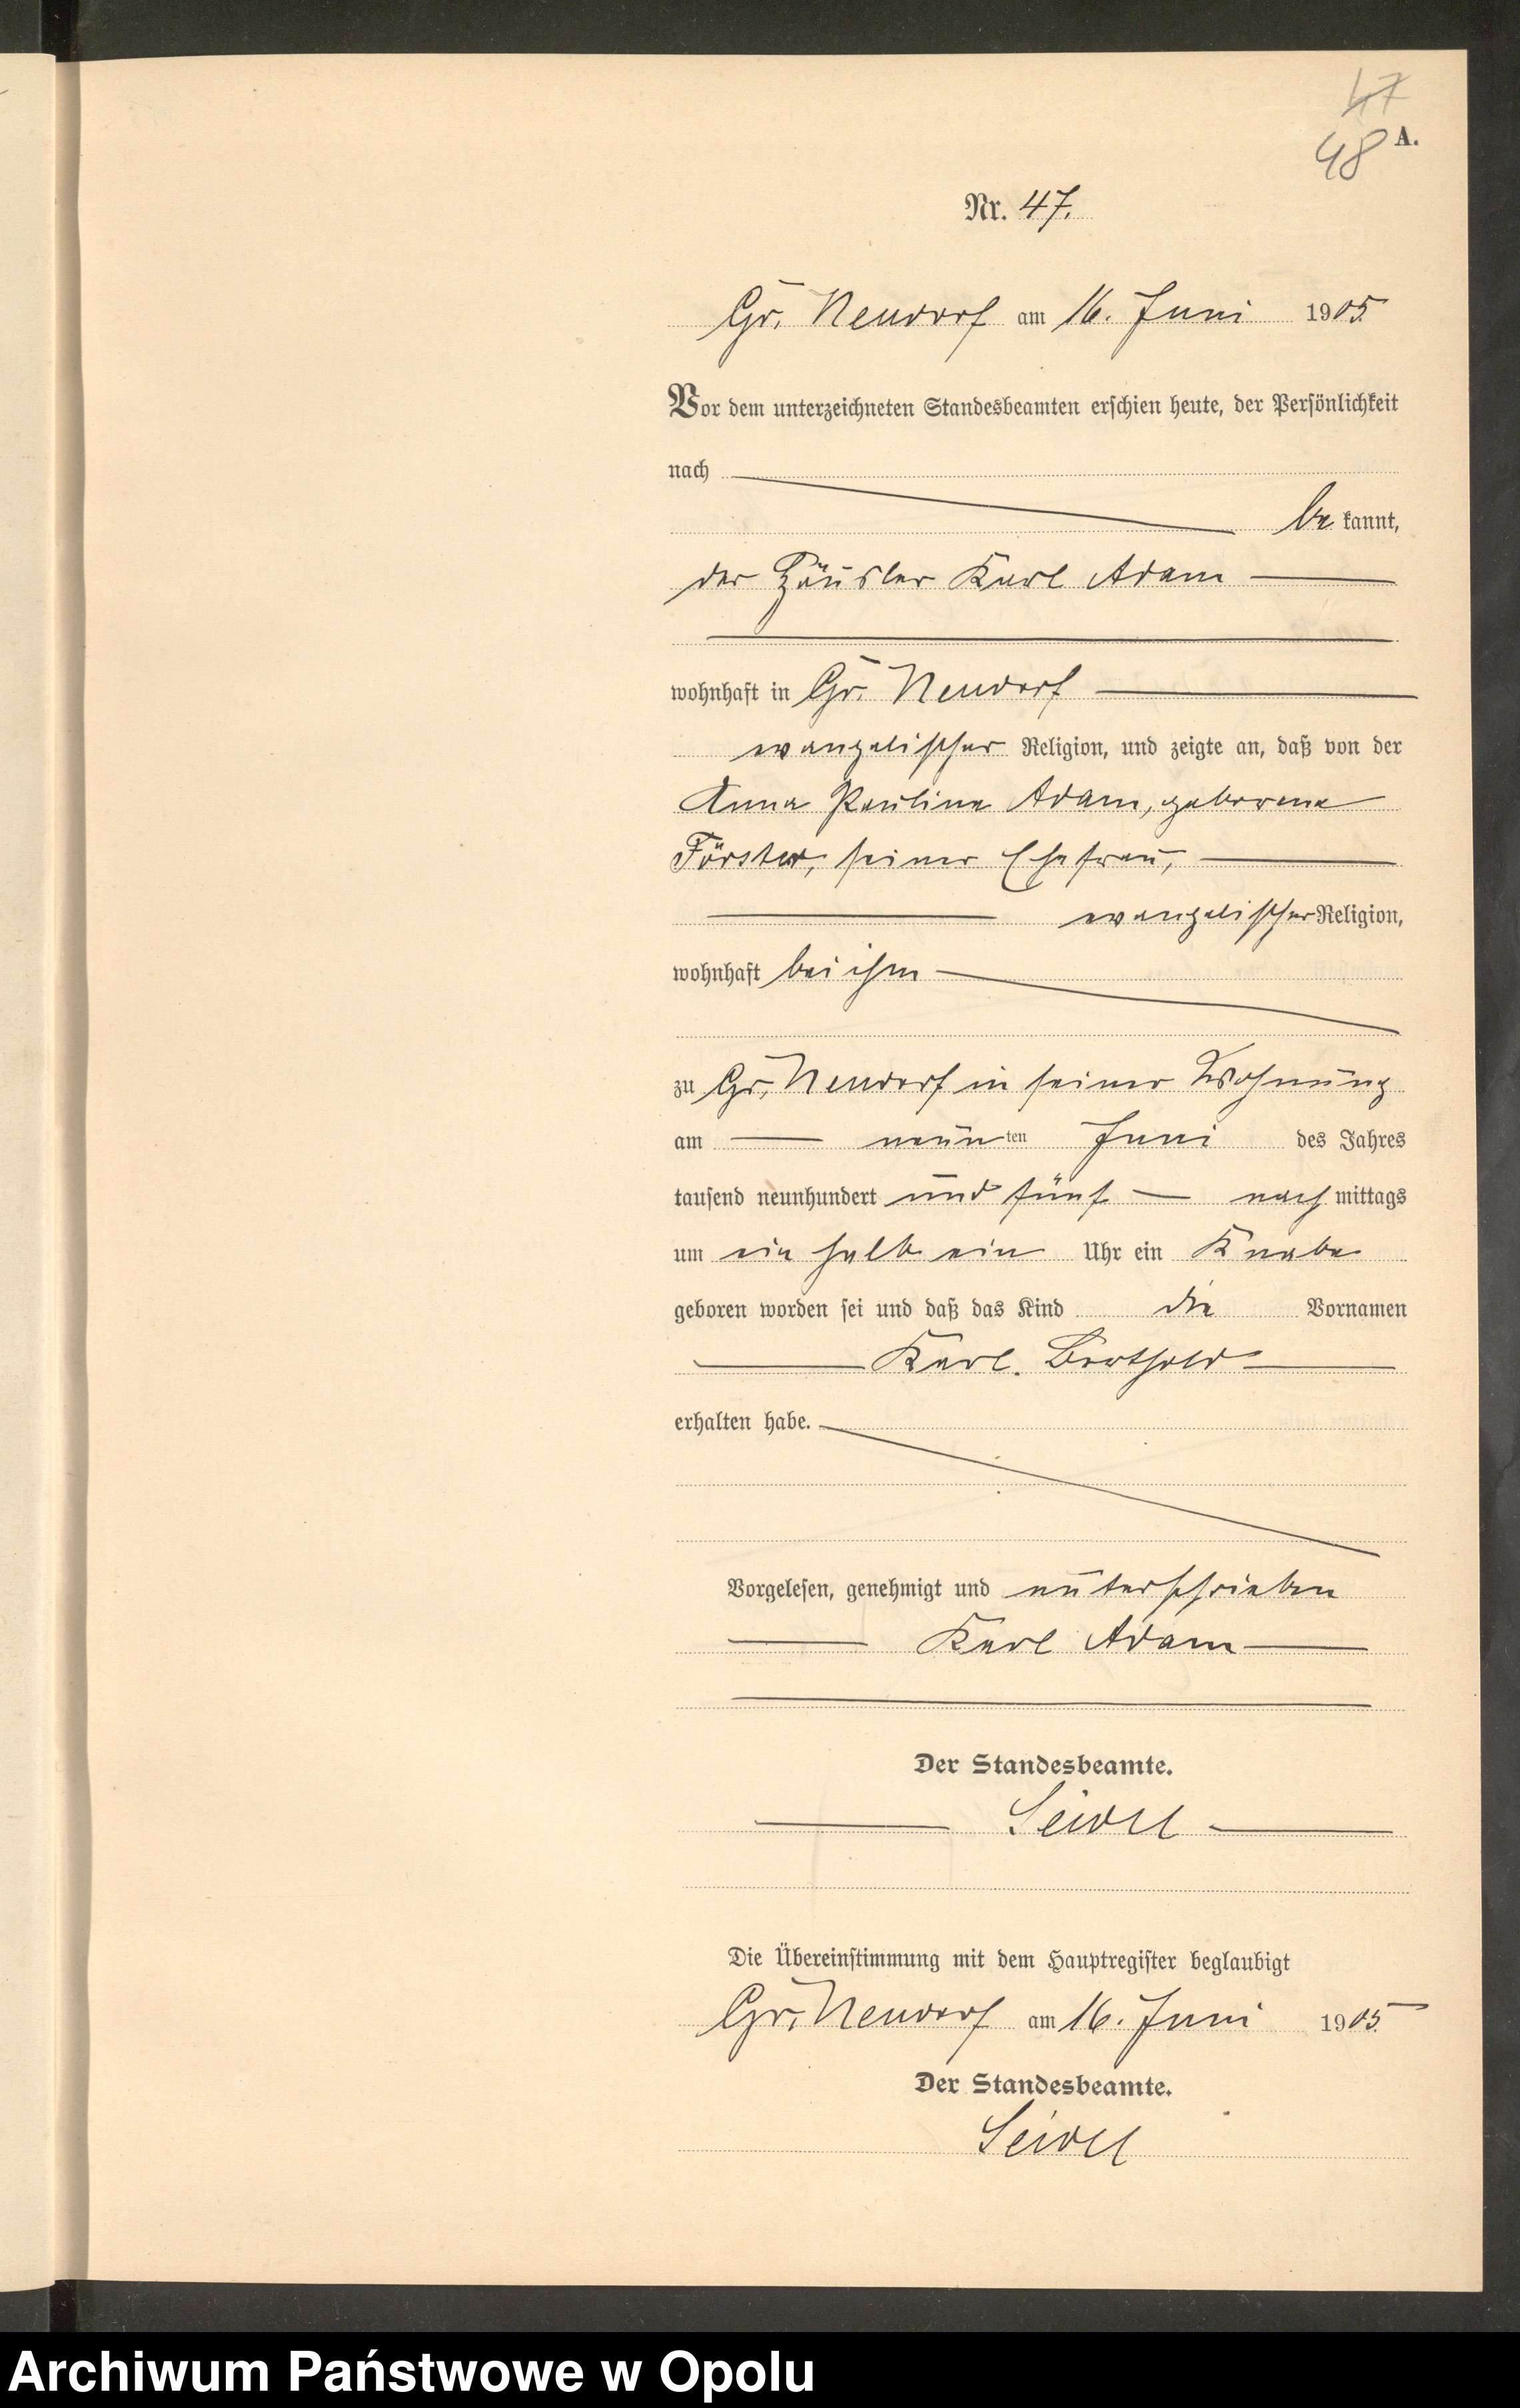 47
48 A.
Nr. 47.
Gr. Neudorf am 16. Juni 1905.
Vor dem unterzeichneten Standesbeamten erschien heute, der Persönlichkeit
nach
be kannt,
der Häusler Karl Adam
wohnhaft in Gr. Neudorf
evangelischer Religion, und zeigte an, daß von der
Anna Pauline Adam, geborene
Förster, seiner Ehefrau,
evangelischer Religion,
wohnhaft bei ihm
zu Gr. Neudorf in seiner Wohnung
am neun ten Juni des Jahres
tausend neunhundert und fünf nach mittags
um ein halb ein Uhr ein Knabe
geboren worden sei und daß das Kind die Vornamen
Karl. Berthold
erhalten habe.
Vorgelesen, genehmigt und unterschrieben
Karl Adam
Der Standesbeamte.
Seidel
Die Übereinstimmung mit dem Hauptregister beglaubigt
Gr. Neudorf am 16. Juni 1905.
Der Standesbeamte.
Seidel
Archiwum Państwowe w Opolu